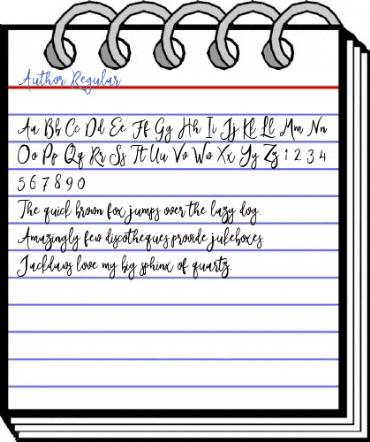 Author Regular
Aa Bb Cc Dd Ee Ff Gg Hh Ii Jj Kk Ll Mm Nn
Oo Pp Qq Rr Ss Tt Uu Vv Ww Xx Yy Zz 1 2 3 4
5 6 7 8 9 0
The quick brown fox jumps over the lazy dog.
Amazingly few discotheques provide jukeboxes.
Jackdaws love my big sphinx of quartz.